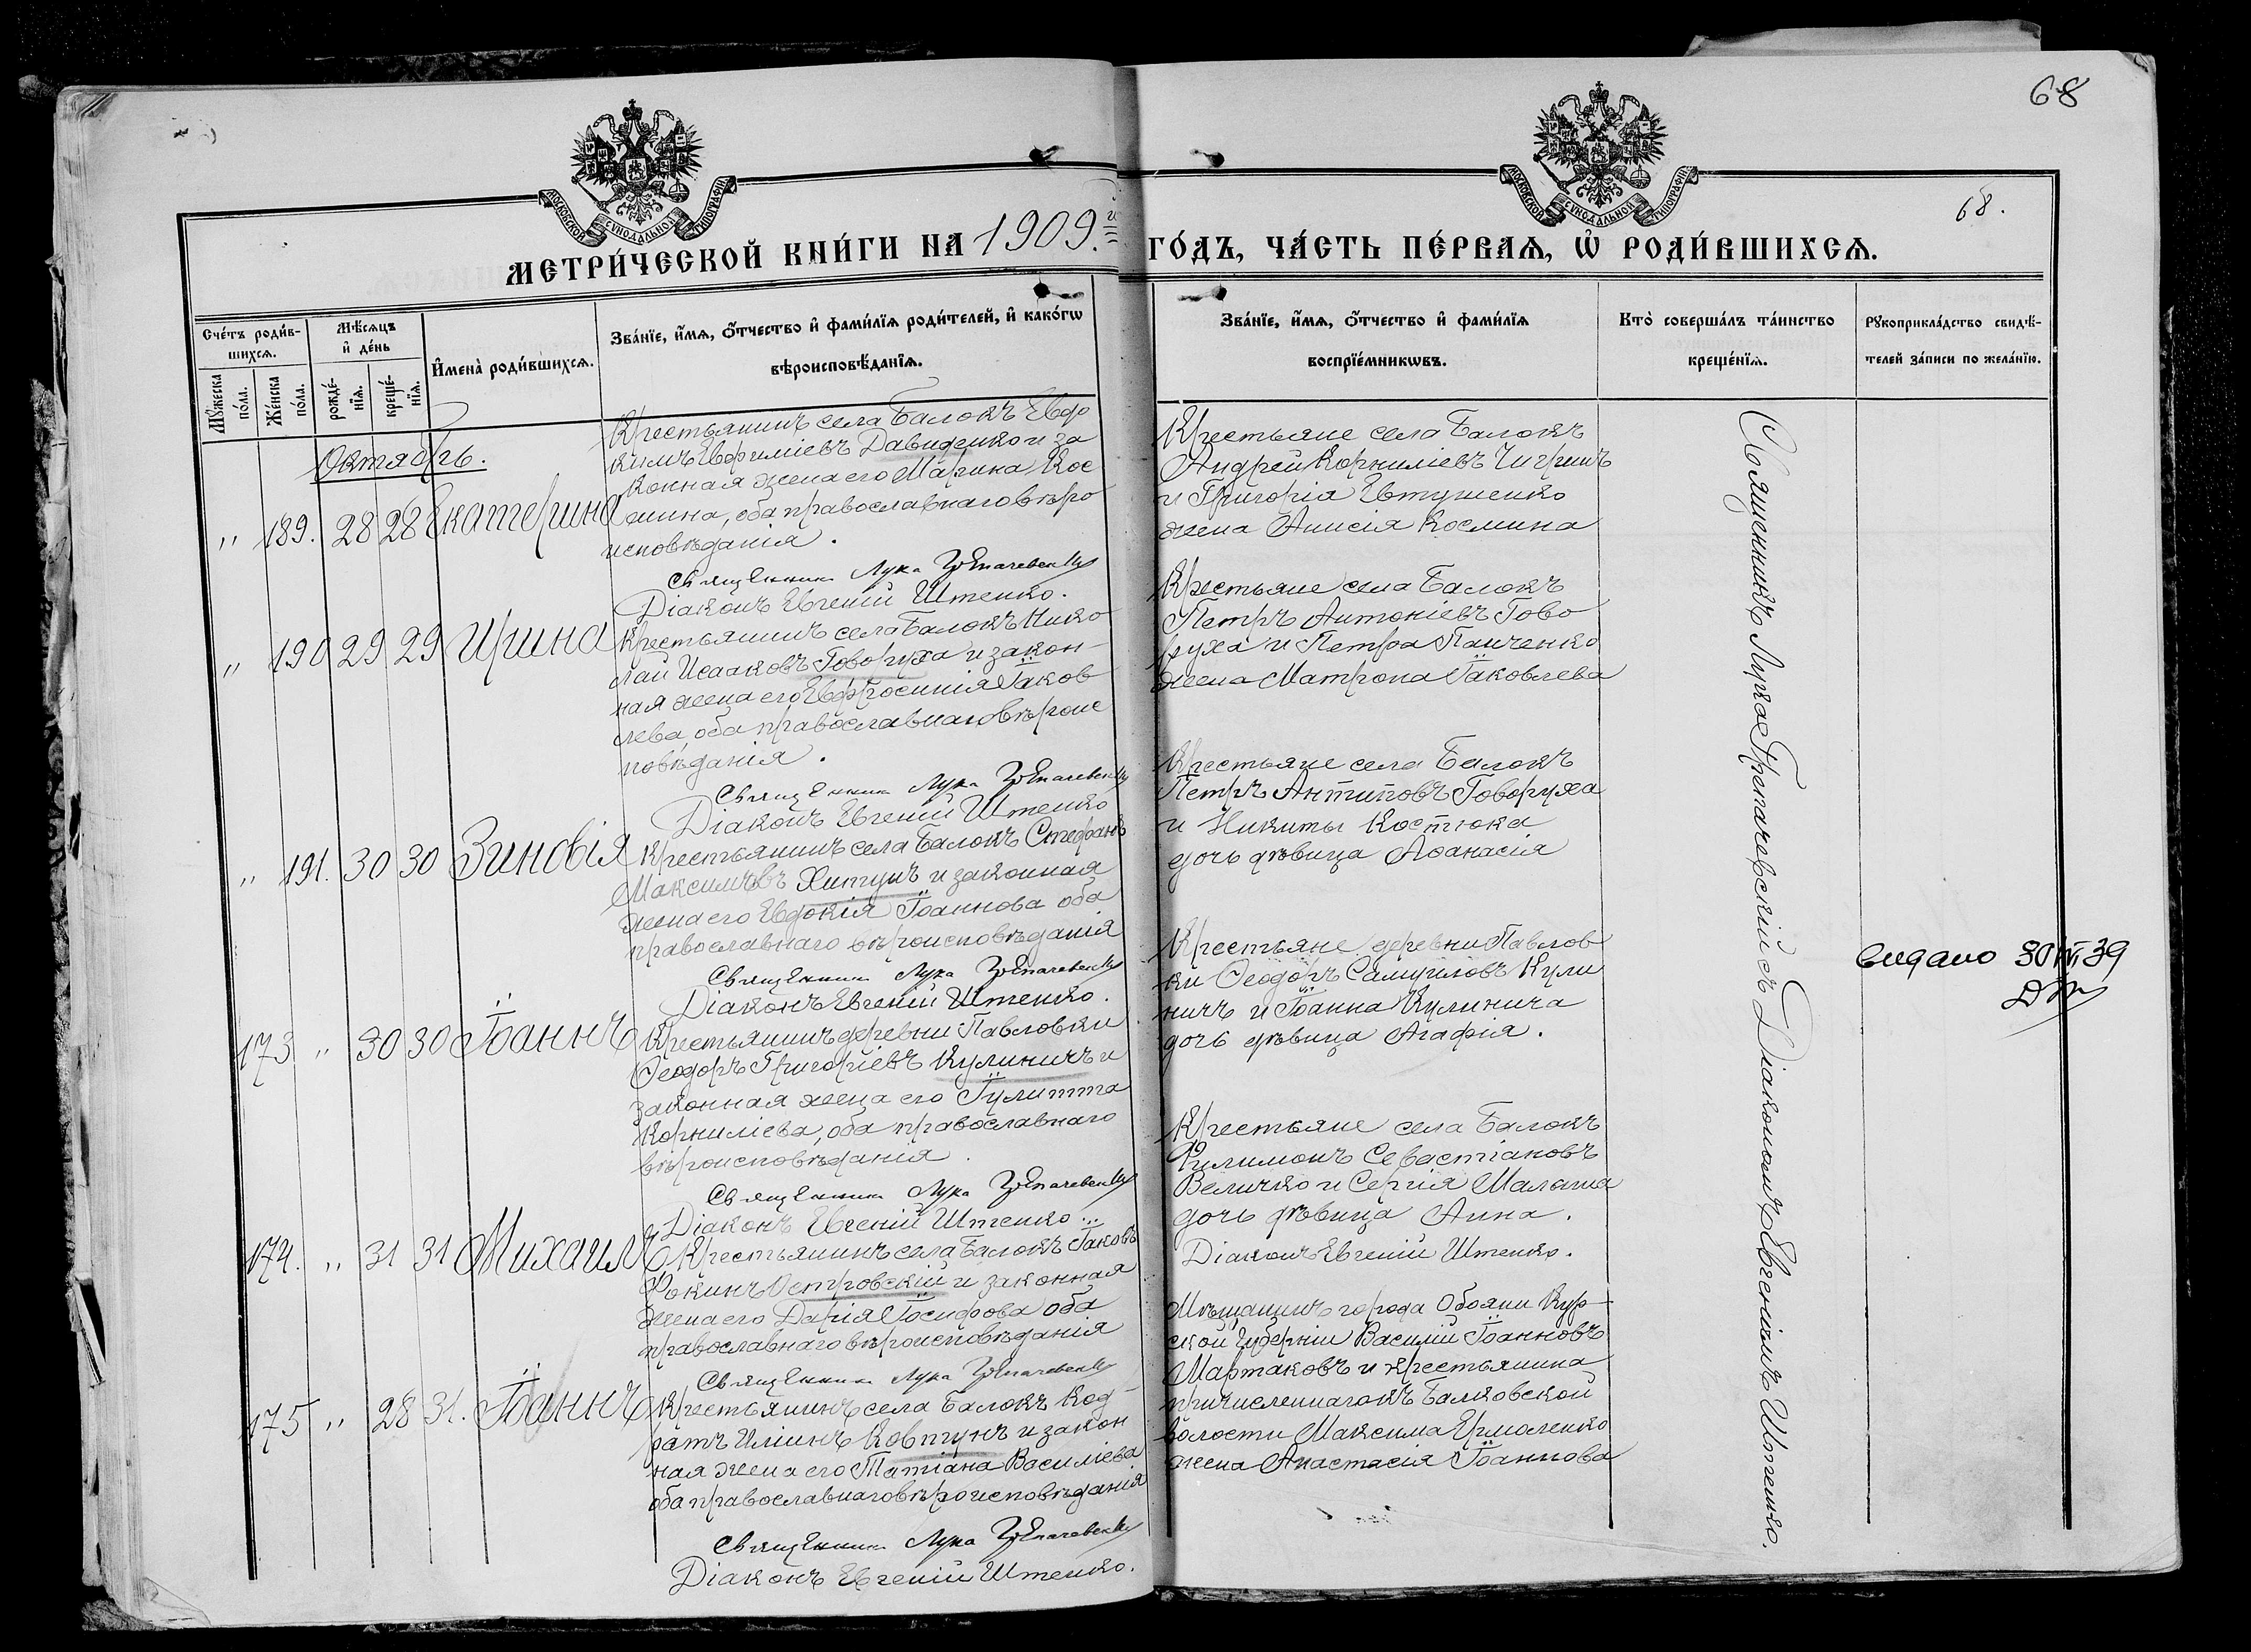 68
68.
МОСКОВСКОЙ СѴНОДАЛЬНОЙ ТИПОГРАФІИ
МОСКОВСКОЙ СѴНОДАЛЬНОЙ ТИПОГРАФІИ
МЕТРИ́ЧЕСКОЙ КНИ́ГИ НА 1909.й ГО́ДЪ, ЧА́СТЬ ПЕ́РВАѦ, Ѽ РОДИ́ВШИХСѦ.
Сче́тъ роди́в-
шихсѧ.
Мꙋ́жеска по́ла.
Же́нска по́ла.
Мѣ́сѧцъ
и҆ де́нь
рожде́-
нїѧ.
креще́-
нїѧ.
И҆мена̀ роди́вшихсѧ.
Зва́нїе, и҆́мѧ, ѻ҆́тчество и҆ фами́лїѧ роди́телей, и҆ како́гѡ
вѣроисповѣ́данїѧ.
Зва́нїе, и҆́мѧ, ѻ҆́тчество и҆ фами́лїѧ
воспрїе́мникѡвъ.
Кто̀ соверша́лъ та́инство
креще́нїѧ.
Рꙋкоприкла́дство свидѣ́-
телей за́писи по жела́нїю.
Октябрь.
" 189. 28 28 Екатерина
Крестьянинъ села Балокъ Евдо
кимъ Евфиміевъ Давиденко и за
конная жена его Марина Кос
мина, оба православнаго вѣро
исповѣданія.
Священникъ Лука Грепачевскій
Діаконъ Евгеній Штепко.
Крестьяне села Балокъ
Андрей Корниліевъ Чигринъ
и Григорія Евтушенко
жена Анисія Космина
" 190 29 29 Ирина
Крестьянинъ села Балокъ Нико
лай Исааковъ Говоруха и закон-
ная жена его Евфросинія Іаков
лева, оба православнаго вѣроис
повѣданія.
Священникъ Лука Грепачевскій
Діаконъ Евгеній Штепко
Крестьяне села Балокъ
Петръ Антоніевъ Гово
руха и Петра Панченко
жена Матрона Іаковлева
" 191. 30 30 Зиновія
Крестьянинъ села Балокъ Стефанъ
Максимовъ Хитунъ и законная
жена его Евдокія Іоаннова оба
православнаго вѣроисповѣданія
Священникъ Лука Грепачевскій
Діаконъ Евгеній Штепко.
Крестьяне села Балокъ
Петръ Антиповъ Говоруха
и Никиты Костюка
дочь дѣвица Аѳанасія
173 " 30 30 Іоаннъ
Крестьянинъ деревни Павловки
Ѳеодоръ Григоріевъ Кулиничъ и
законная жена его Іулитта
Корниліева, оба православнаго
вѣроисповѣданія.
Священникъ Лука Грепачевскій
Діаконъ Евгеній Штепко.
Крестьяне деревни Павлов
ки Ѳеодоръ Самуиловъ Кули
ничъ и Іоанна Кулинича
дочь дѣвица Агафія.
174. " 31 31 Михаилъ
Крестьянинъ села Балокъ Іаковъ
Фокинъ Островскій и законная
жена его Дарія Іосифова оба
православнаго вѣроисповѣданія
Священникъ Лука Грепачевскій
Крестьяне села Балокъ
Филимонъ Севастіановъ
Величко и Сергія Малаша
дочь дѣвица Анна.
Діаконъ Евгеній Штепко.
175 " 28 31. Іоаннъ
Крестьянинъ села Балокъ Код-
ратъ Иліинъ Ковтунъ и закон
ная жена его Татіана Василіева
оба православнаго вѣроисповѣданія
Священникъ Лука Грепачевскій
Діаконъ Евгеній Штепко.
Мѣщанинъ города Обояни Кур-
ской губерніи Василій Іоанновъ
Мартаковъ и крестьянина
причисленнаго къ Балковской
волости Максима Ермоленко
жена Анастасія Іоаннова
Священникъ Лука Грепачевскій съ Діакономъ Евгеніемъ Штепко.
видано 30 39